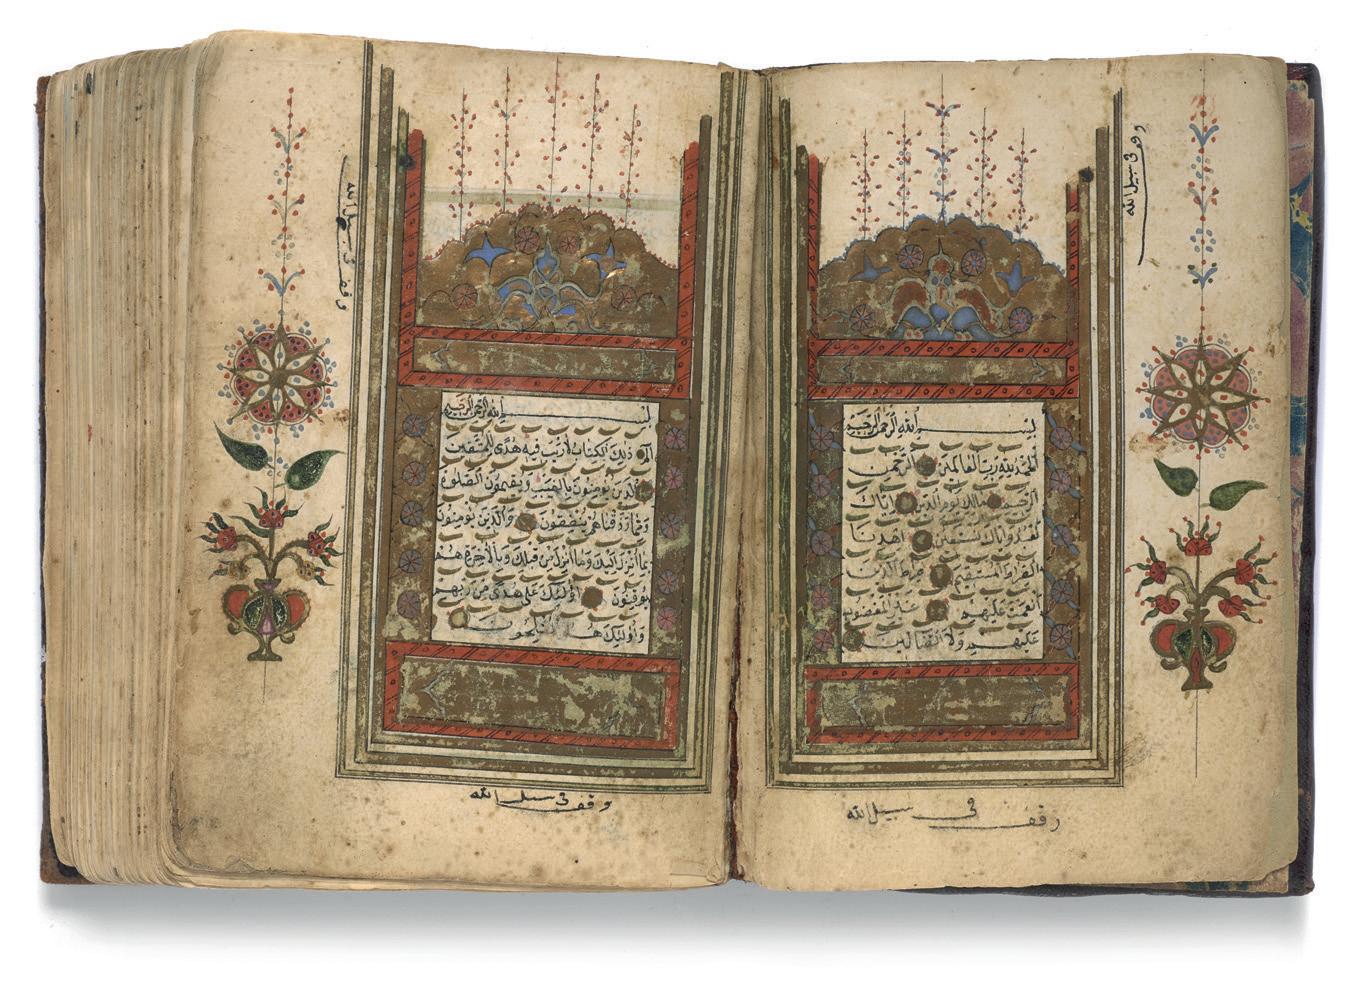 وقف في سبيل الله
بسم الله الرحمن الرحيم
الحمد لله رب العالمين الرحمن
الرحيم مالك يوم الدين اياك
نعبد واياك نستعين اهدنا
الصراط المستقيم صراط الذين
انعمت عليهم غير المغضوب
عليهم ولا الضالين
وقف في سبيل الله
بسم الله الرحمن الرحيم
الم ذلك الكتاب لا ريب فيه هدى للمتقين
الذين يؤمنون بالغيب ويقيمون الصلوة
ومما رزقناهم ينفقون والذين يؤمنون
بما انزل اليك وما انزل من قبلك وبالاخرة هم
يوقنون اولئك على هدى من ربهم
واولئك هم المفلحون
وقف في سبيل الله
وقف في سبيل الله